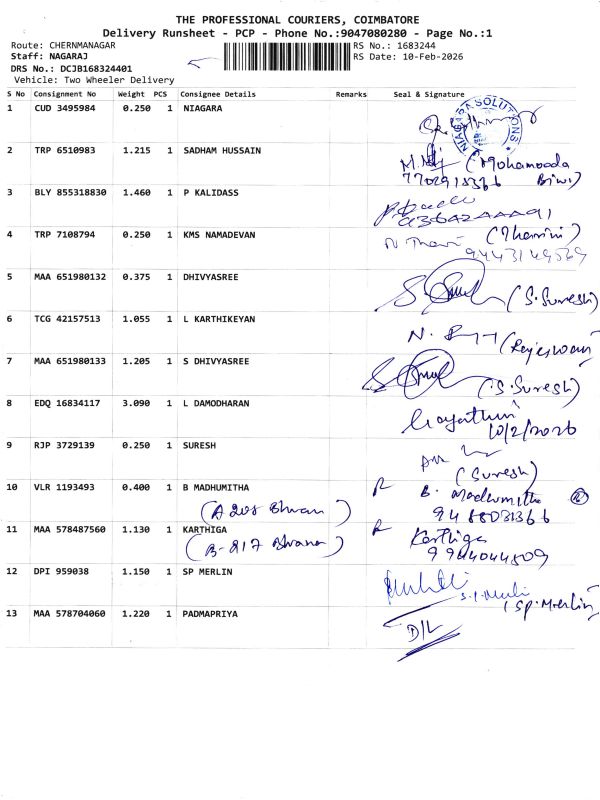 THE PROFESSIONAL COURIERS, COIMBATORE
Delivery Runsheet - PCP - Phone No.:9047080280 - Page No.:1
Route: CHERNMANAGAR RS No.: 1683244
Staff: NAGARAJ RS Date: 10-Feb-2026
DRS No.: DCJB168324401
Vehicle: Two Wheeler Delivery
S No Consignment No Weight PCS Consignee Details Remarks Seal & Signature
1 CUD 3495984 0.250 1 NIAGARA
NIAGARA SOLUTIONS
2 TRP 6510983 1.215 1 SADHAM HUSSAIN
(Mohamooda
7702918366 Biwi)
3 BLY 855318830 1.460 1 P KALIDASS
4 TRP 7108794 0.250 1 KMS NAMADEVAN
(Tharini)
9443149569
5 MAA 651980132 0.375 1 DHIVYASREE
(S.Suresh)
6 TCG 42157513 1.055 1 L KARTHIKEYAN
(Rajeswari)
7 MAA 651980133 1.205 1 S DHIVYASREE
(S.Suresh)
8 EDQ 16834117 3.090 1 L DAMODHARAN
Gayathiri
10/2/2026
9 RJP 3729139 0.250 1 SURESH
(Suresh)
10 VLR 1193493 0.400 1 B MADHUMITHA
B. Madhumitha
(A 205
11 MAA 578487560 1.130 1 KARTHIGA
Karthiga
(B-217
9944044809
12 DPI 959038 1.150 1 SP MERLIN
(SP.Merlin)
13 MAA 578704060 1.220 1 PADMAPRIYA
D/L